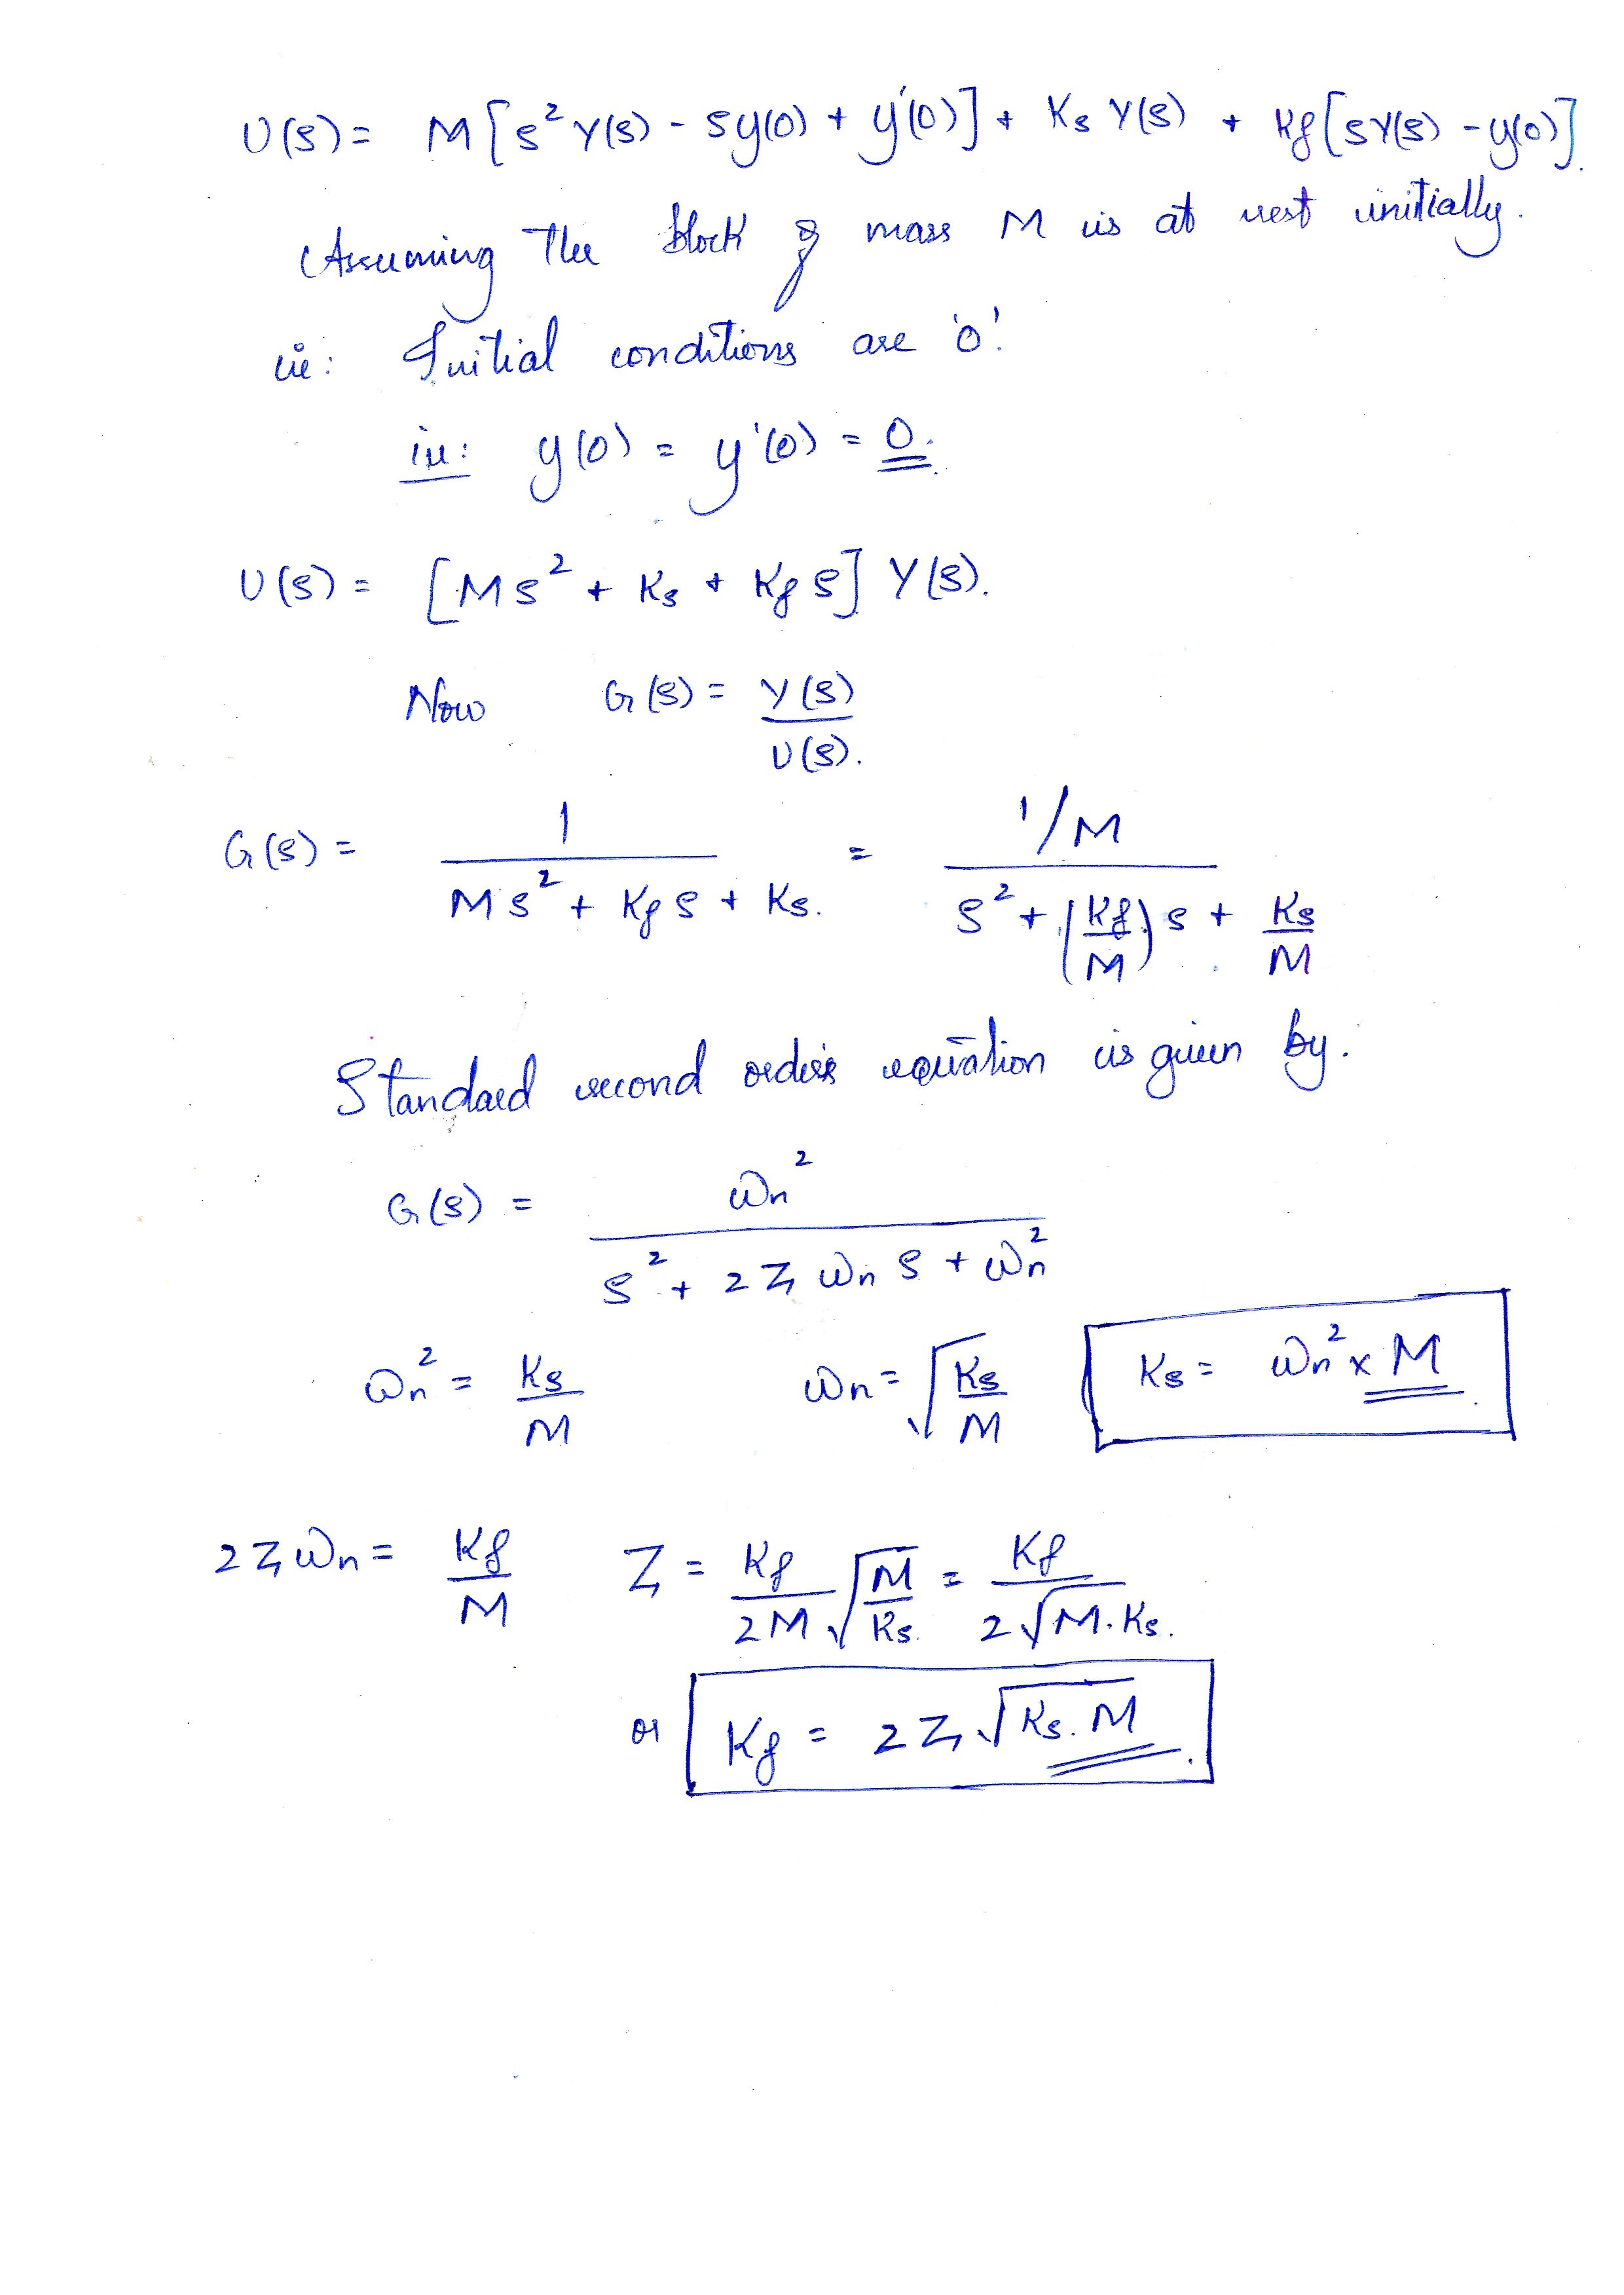 U(s) = M[s² Y(s) - sy(0) + y'(0)] + Ks Y(s) + Kf[sY(s) - y(0)].
Assuming The block of mass M is at rest initially.
ie: Initial conditions are '0'.
ie: y(0) = y'(0) = 0.
U(s) = [Ms² + Ks + Kf s] Y(s).
Now G(s) = Y(s) / U(s).
G(s) = 1 / (Ms² + Kf s + Ks.) = (1/M) / (s² + (Kf/M) s + Ks/M)
Standard second order equation is given by.
G(s) = ωn² / (s² + 2ζ ωn s + ωn²)
ωn² = Ks/M ωn = √(Ks/M) Ks = ωn² x M.
2ζωn = Kf/M ζ = Kf/2M √(M/Ks.) = Kf / (2√(M.Ks.))
or Kf = 2ζ√(Ks.M).